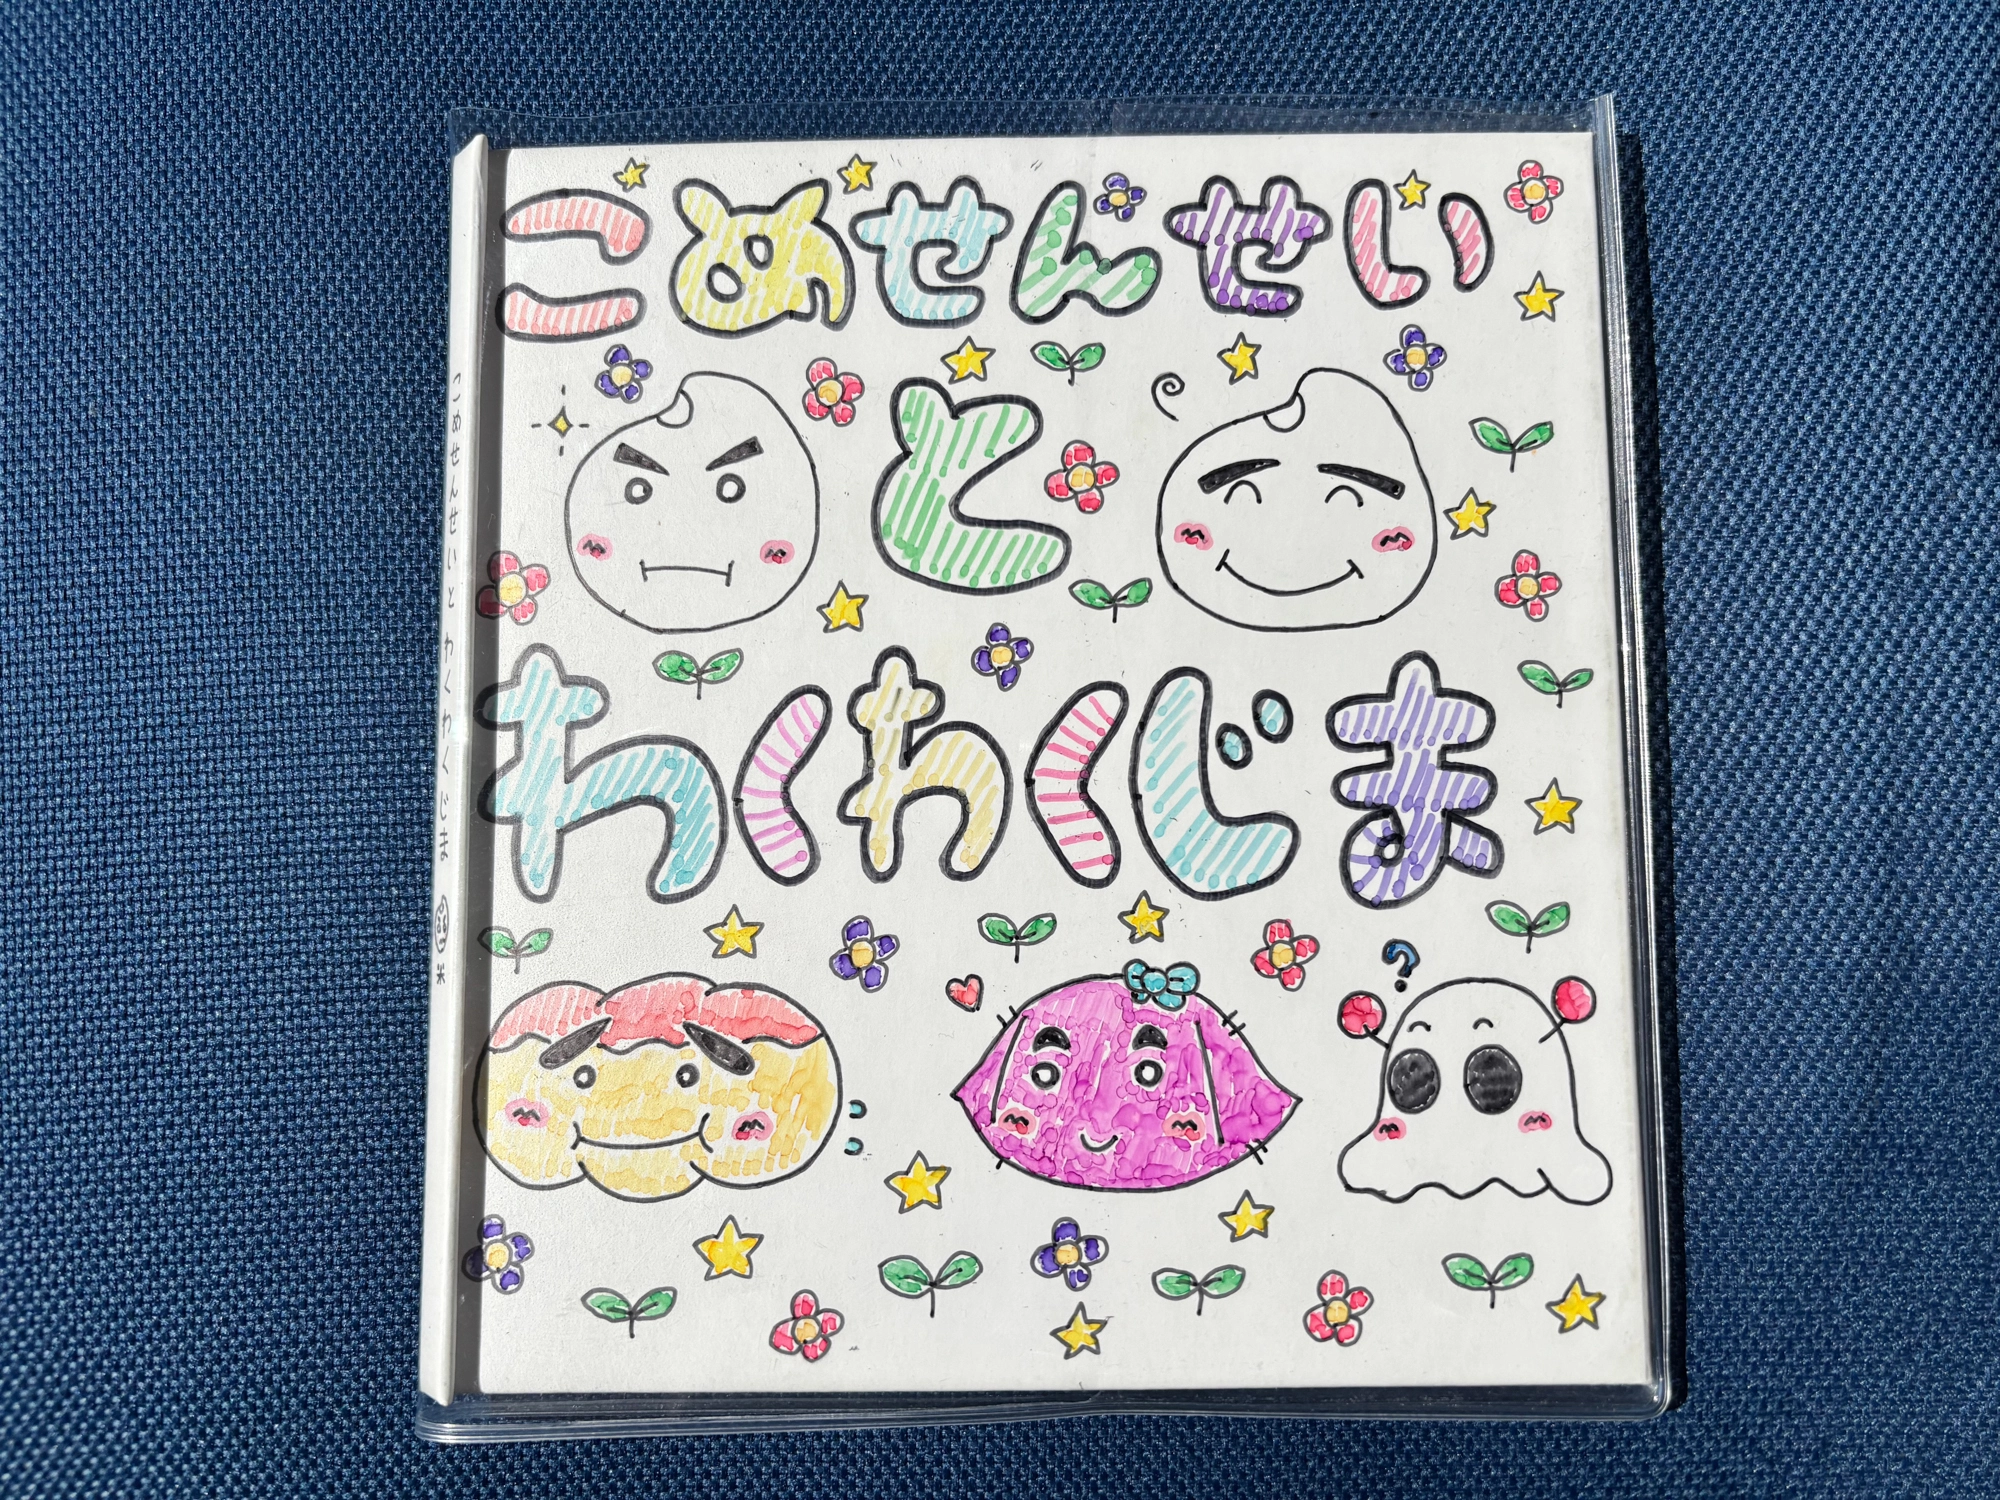 こめせんせい
と
わくわくじま
?
こめせんせいと わくわくじま 米